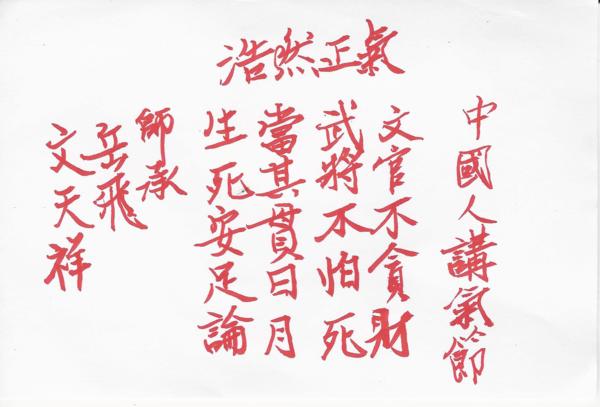 浩然正氣
中國人講氣節
文官不貪財
武將不怕死
當其貫日月
生死安足論
師承
岳飛
文天祥